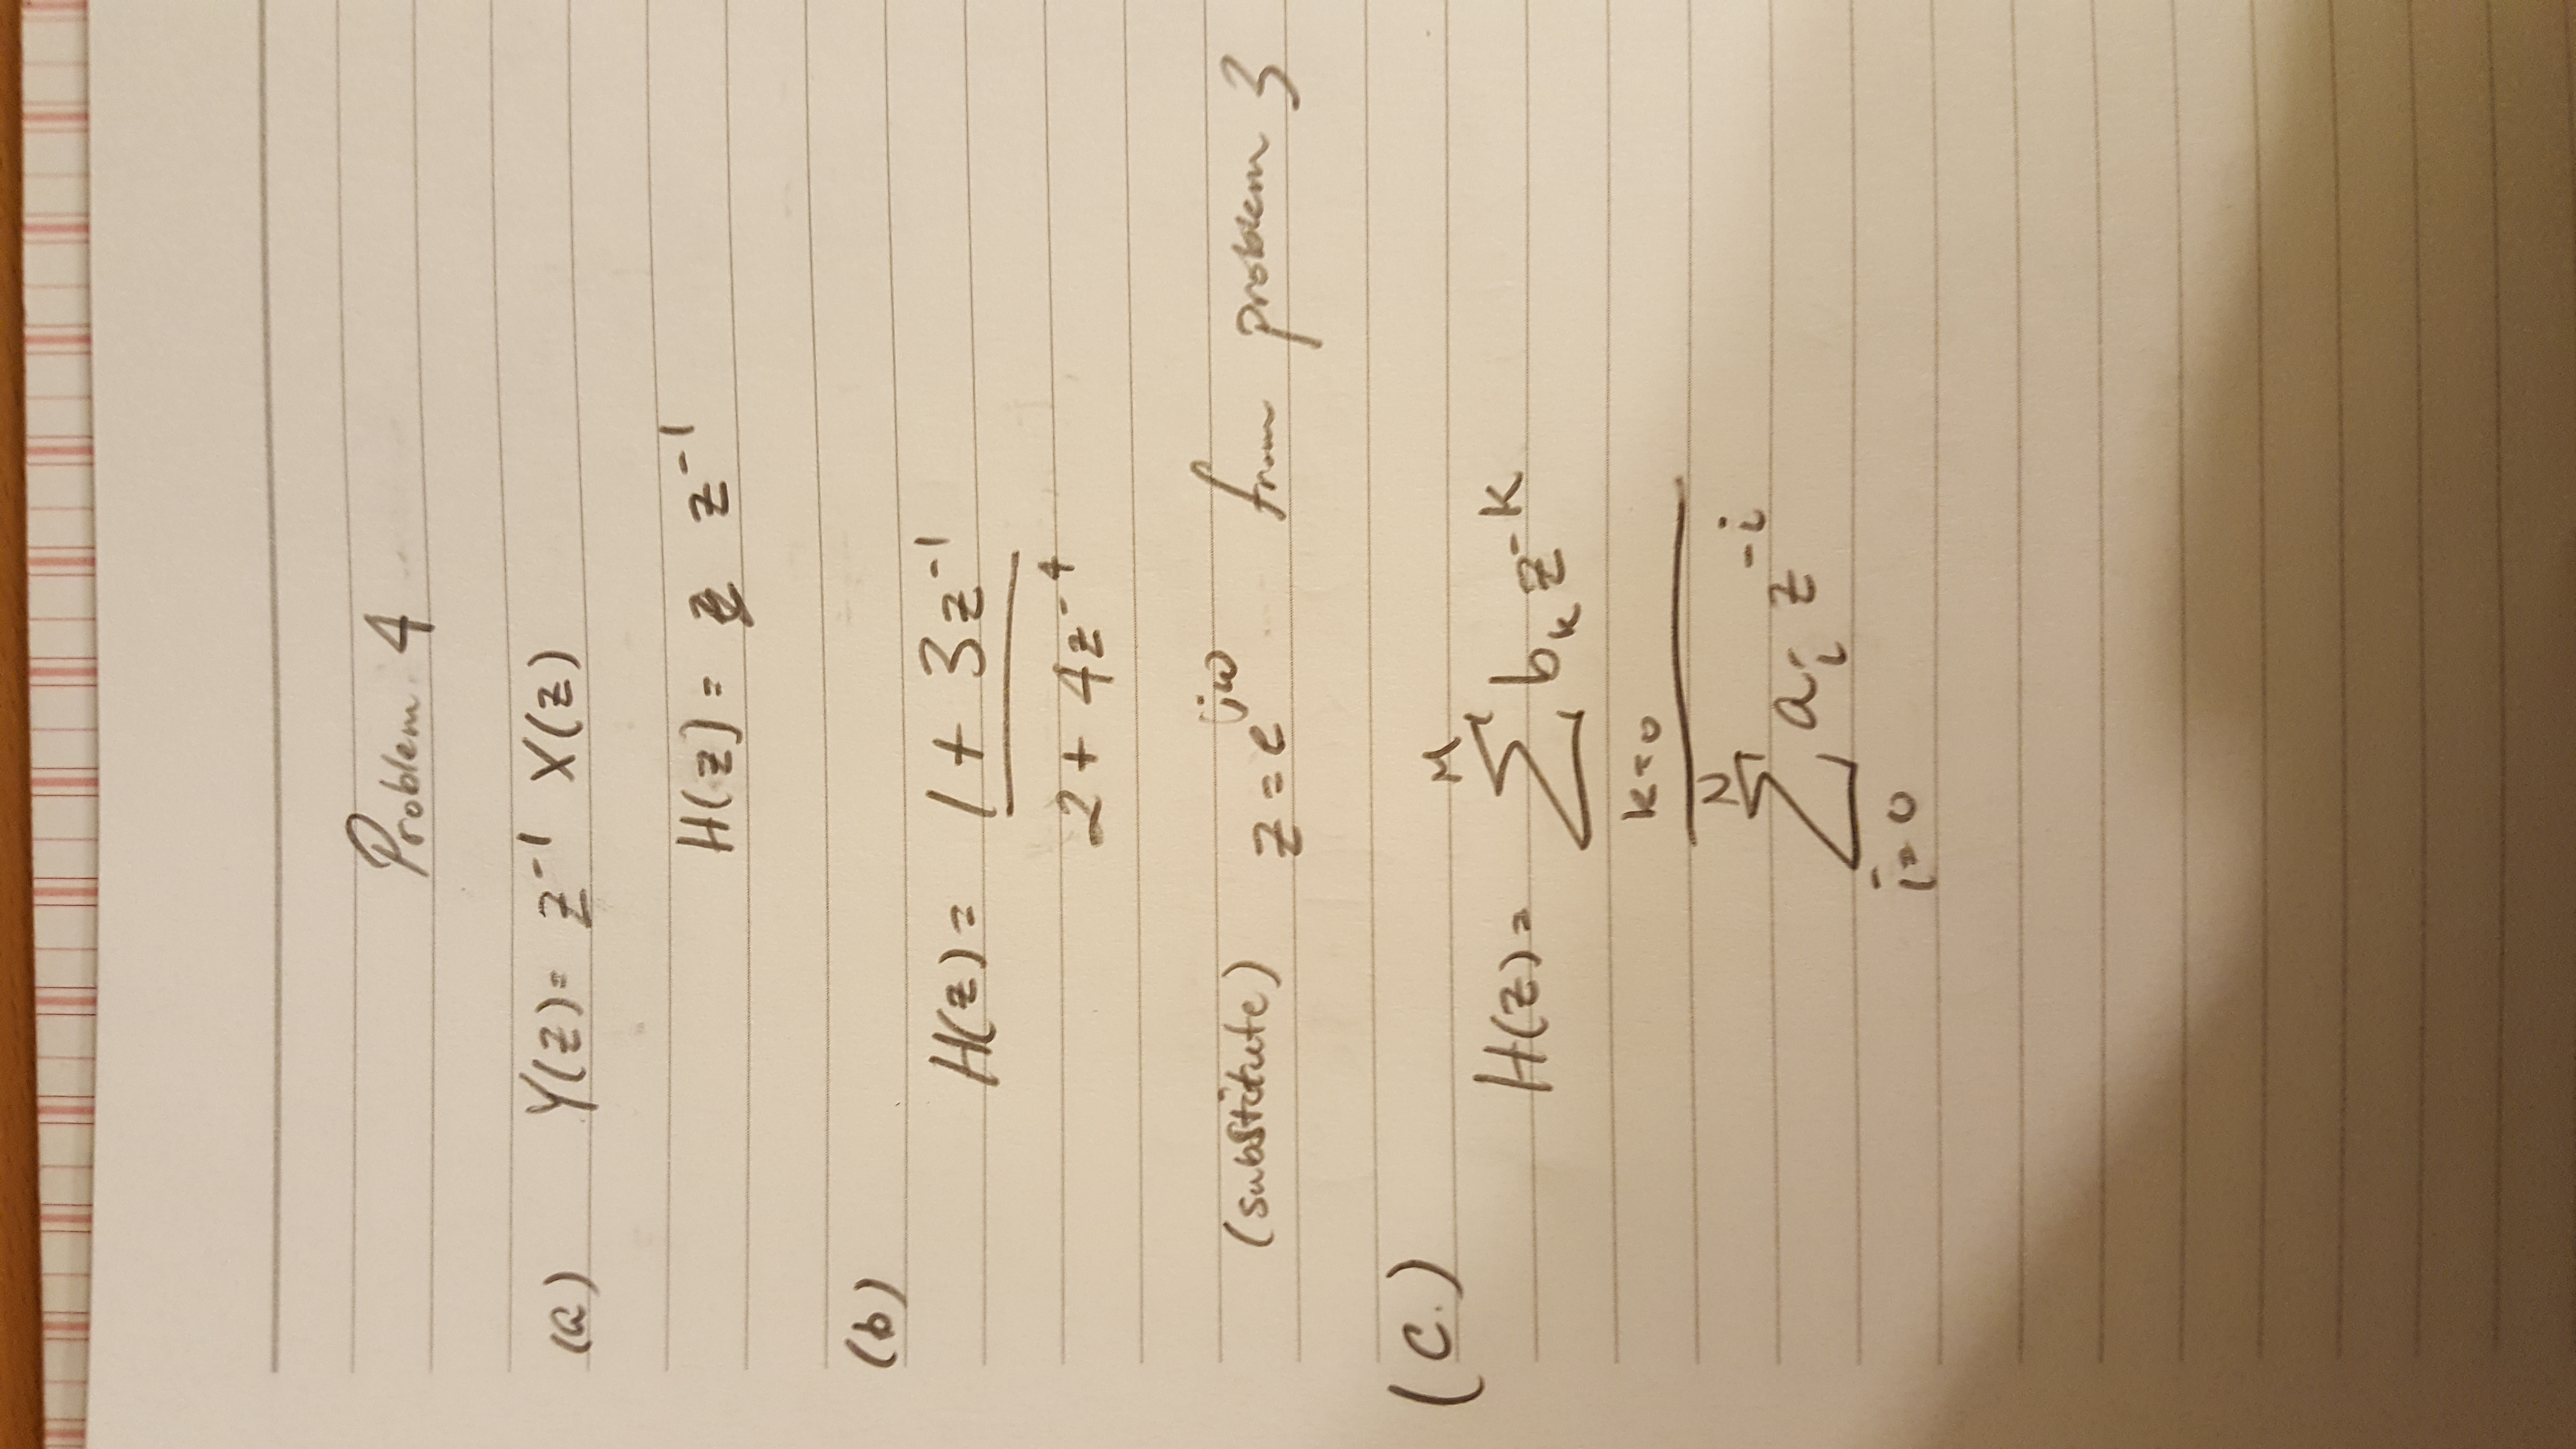 Problem 4
(a) Y(z)= z⁻¹ X(z)
H(z)= z⁻¹
(b)
H(z)= 1 + 3z⁻¹
2 + 4z⁻⁴
(substitute) z=e^(jω) from problem 3
(C.)
M
H(z)= ∑ bₖ z⁻ᵏ
k=0
N
∑ aᵢ z⁻ⁱ
i=0